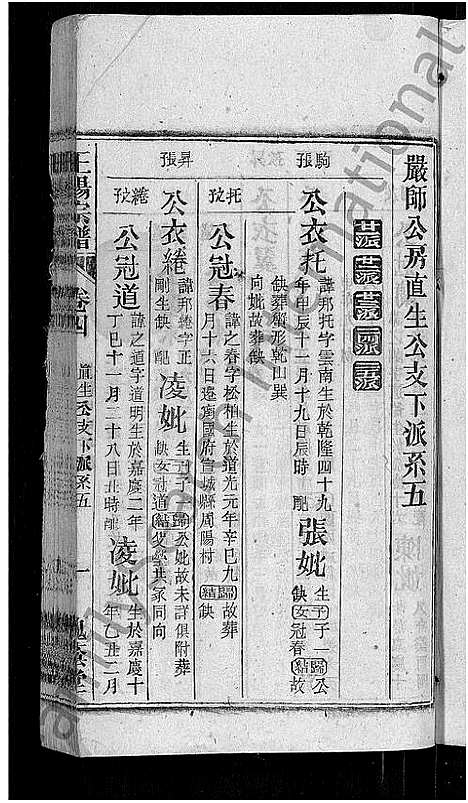 嚴師公房直生公支下派系五
駒張
公衣托
諱邦托字雲南生於乾隆四十九
年甲辰十一月十九日辰時 配
張妣
生子 子一 歸 公
缺 女冠春 結 故
缺葬蟹形乾山巽
向妣故葬缺
托妣
公冠春
諱之春字松柏生於道光元年辛巳九
月十六日遷甯國府宣城縣周陽村
歸 故葬
結 缺
昇張
公衣綣
諱邦綣字正
剛生缺 配
凌妣
生子 子一 歸 公妣故未詳俱附葬
缺 女冠道 結 父塋共冢同向
綣妣
公冠道
諱之道字道明生於嘉慶二年
丁巳十一月二十八日丑時 配
凌妣
生於嘉慶十
年乙丑二月
王陽宗譜
卷四
直生公支下派系五
一